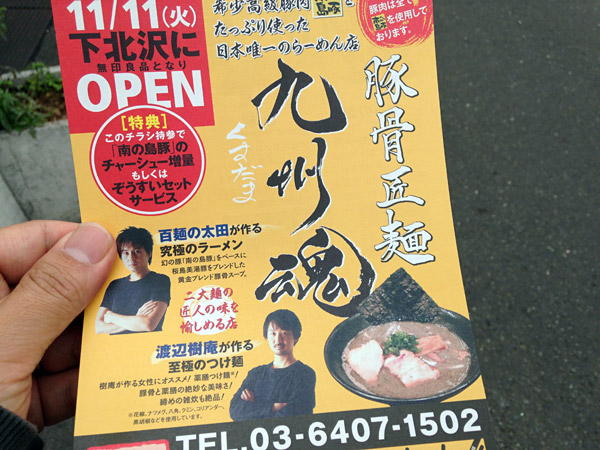 11/11(火)
下北沢に
無印良品となり
OPEN
[特典]
このチラシ持参で
「南の島豚」の
チャーシュー増量
もしくは
ぞうすいセット
サービス
希少高級豚肉
たっぷり使った
日本唯一のらーめん店
豚肉は全て
を使用して
おります。
豚骨匠麺
九州魂
くすだま
百麺の太田が作る
究極のラーメン
幻の豚「南の島豚」をベースに
桜島美湯豚をブレンドした
黄金ブレンド豚骨スープ。
二大麺の
匠人の味を
愉しめる店
渡辺樹庵が作る
至極のつけ麺
樹庵が作る女性にオススメ!薬膳つけ麺※!
豚骨と薬膳の絶妙な美味さ!
締めの雑炊も絶品!
※花椒、ナツメグ、八角、クミン、コリアンダー、
黒胡椒などを使用しています。
TEL.03-6407-1502